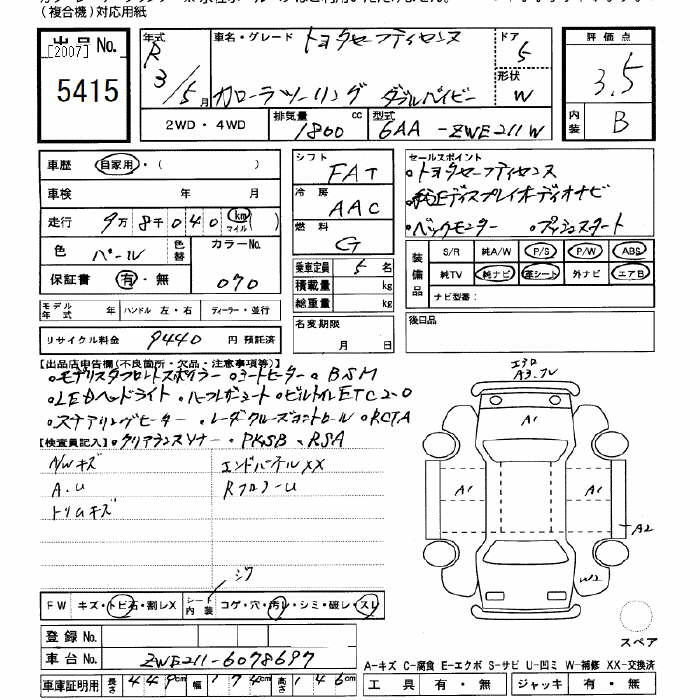 (複合機)対応用紙
出品No.
[2007]
5415
年式
R 3/5月
車名・グレード トヨタセーフティセンス
カローラツーリング ダブルバイビー
ドア
5
形状
W
評価点
3.5
内装
B
2WD・4WD
排気量 1800 cc
型式 6AA-ZWE211W
車歴 自家用・( )
車検 年 月
走行 9万8千040 km マイル ( )
色 パール 色替 カラーNo.
保証書 有・無 070
モデル年式 年 ハンドル 左・右 ディーラー・並行
リサイクル料金 9440 円 預託済
シフト FAT
冷房 AAC
燃料 G
乗車定員 5 名
積載量 kg
総重量 kg
名変期限
月 日
セールスポイント
・トヨタセーフティセンス
・純正ディスプレイオーディオナビ
・バックモニター ・プッシュスタート
装備品
S/R 純A/W P/S P/W ABS
純TV 純ナビ 革シート 外ナビ エアB
ナビ型番:
後日品
【出品店申告欄(不良箇所・欠品・注意事項等)】
・モデリスタフロントスポイラー ・シートヒーター ・BSM
・LEDヘッドライト ・ハーフレザーシート ・ビルトインETC2.0
・ステアリングヒーター ・レーダークルーズコントロール ・RCTA
【検査員記入】・クリアランスソナー ・PKSB ・RSA
A/Wキズ エンドパネルXX
A.U RフロアーU
トリムキズ
シワ
FW キズ・トビ石・割レX シート内装 コゲ・穴・汚レ・シミ・破レ・スレ
登録No.
車台No. ZWE211-6078697
車庫証明用 長さ 449cm 幅 174cm 高さ 146cm
エアロ
A3.フレ
A1
A1
A1
A2
W2
スペア
A-キズ C-腐食 E-エクボ S-サビ U-凹ミ W-補修 XX-交換済
工具 有・無 ジャッキ 有・無